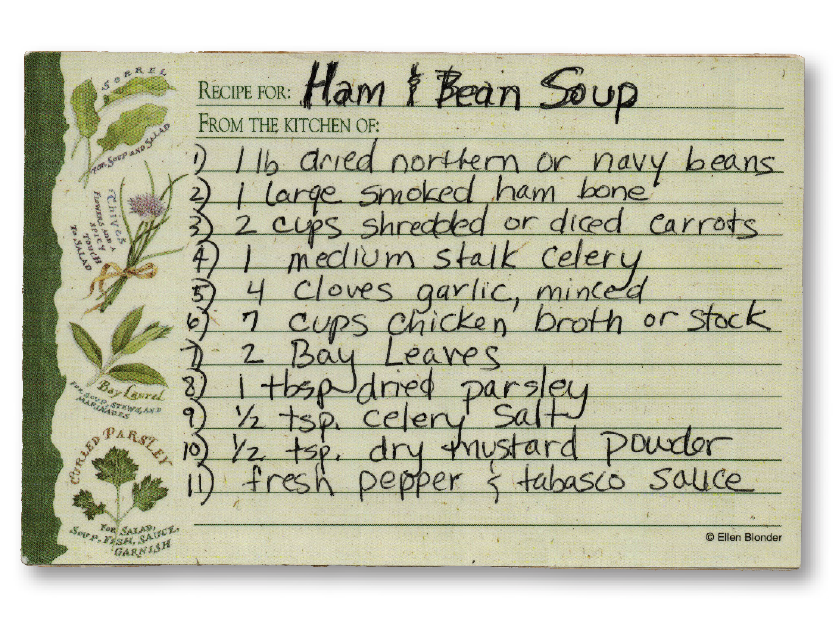 SORREL
FOR SOUP AND SALAD
RECIPE FOR: Ham & Bean Soup
FROM THE KITCHEN OF:
1) 1 lb dried northern or navy beans
2) 1 large smoked ham bone
3) 2 cups shredded or diced carrots
4) 1 medium stalk celery
5) 4 cloves garlic, minced
6) 7 cups chicken broth or stock
7) 2 Bay Leaves
8) 1 tbsp dried parsley
9) ½ tsp. celery Salt
10) ½ tsp. dry mustard powder
11) fresh pepper & tabasco sauce
CHIVES
FLOWERS ADD A
SPICY
TOUCH
TO SALAD
Bay Laurel
FOR SOUP, STEWS, AND
MARINADES
CURLED PARSLEY
FOR SALAD,
SOUP, FISH, SAUCE,
GARNISH
© Ellen Blonder